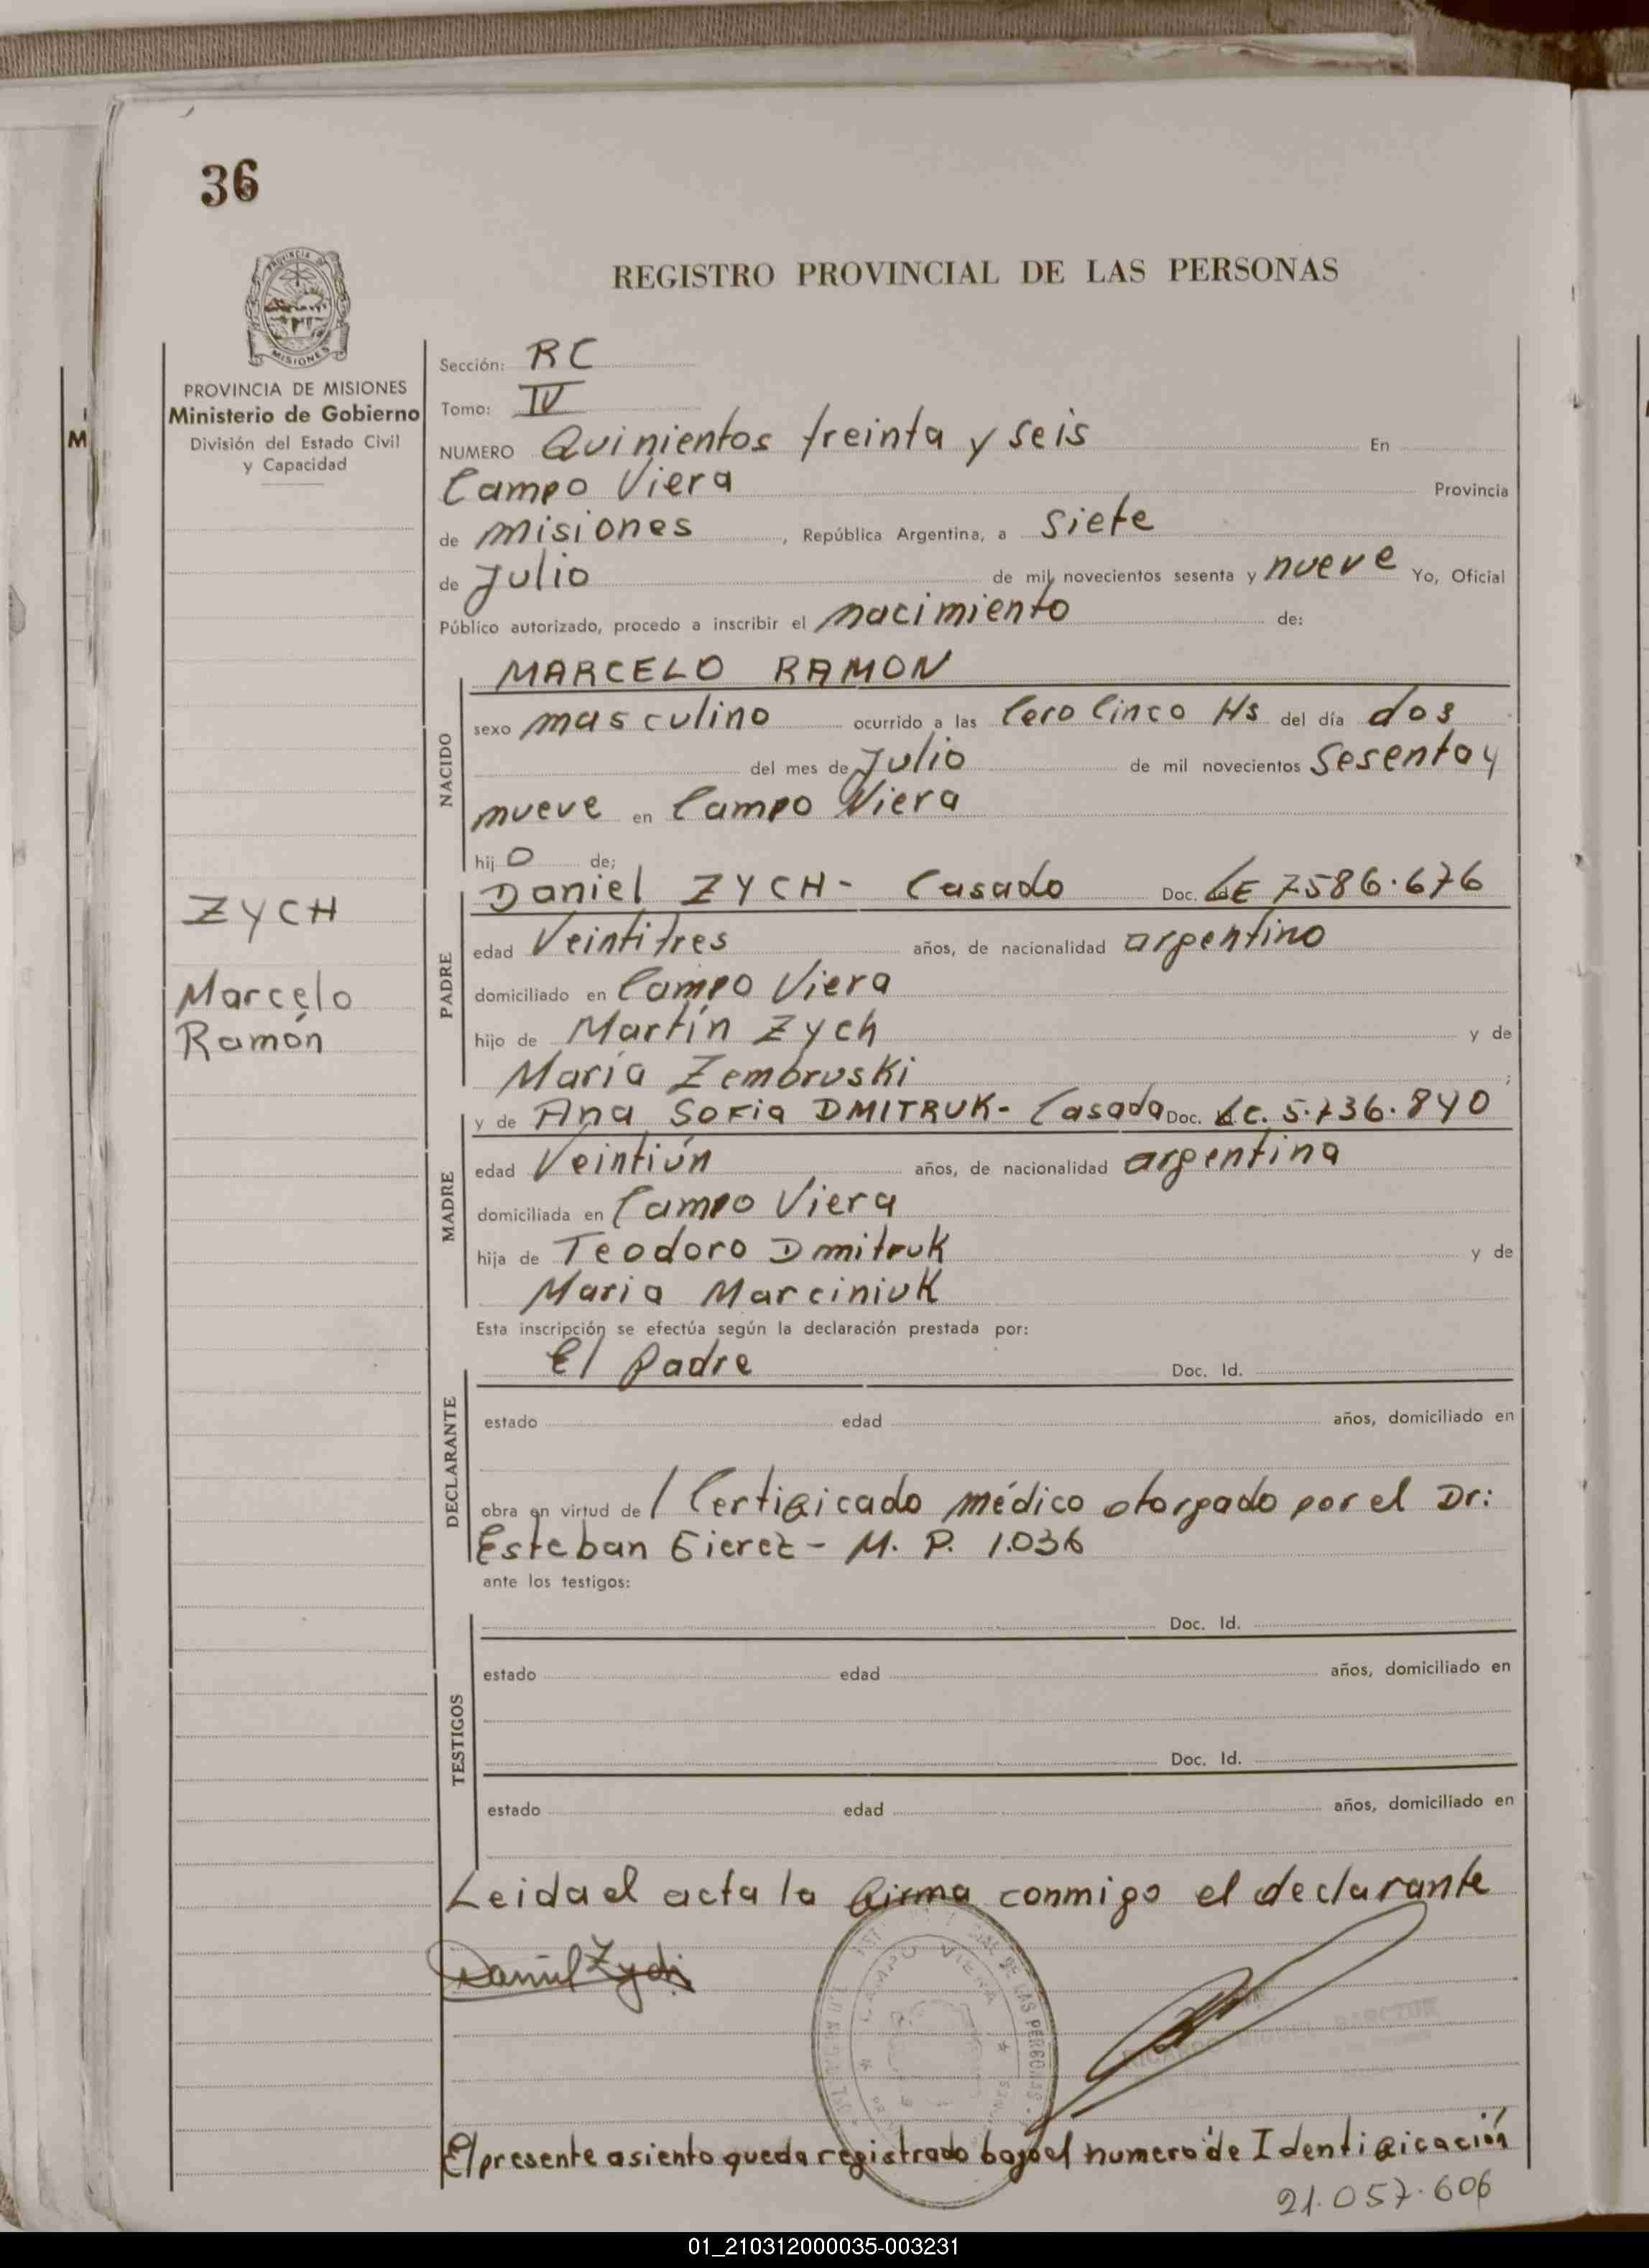 36
REGISTRO PROVINCIAL DE LAS PERSONAS
PROVINCIA DE MISIONES
Ministerio de Gobierno
División del Estado Civil
y Capacidad
Sección: RC
Tomo: IV
NUMERO Quinientos treinta y seis En
Campo Viera Provincia
de misiones, República Argentina, a siete
de Julio de mil novecientos sesenta y nueve Yo, Oficial
Público autorizado, procedo a inscribir el nacimiento de:
NACIDO
MARCELO RAMON
sexo masculino ocurrido a las Cero Cinco Hs del día dos
del mes de Julio de mil novecientos sesenta y
nueve en Campo Viera
hijo de;
ZYCH
Marcelo
Ramón
PADRE
Daniel ZYCH - Casado Doc. LE 7586.676
edad Veintitres años, de nacionalidad argentino
domiciliado en Campo Viera
hijo de Martín Zych y de
María Zembruski ;
MADRE
y de Ana Sofia DMITRUK - Casada Doc. LC. 5.736.840
edad Veintiún años, de nacionalidad argentina
domiciliada en Campo Viera
hija de Teodoro Dmitruk y de
Maria Marciniuk
Esta inscripción se efectúa según la declaración prestada por:
DECLARANTE
El Padre Doc. Id.
estado edad años, domiciliado en
obra en virtud de / Certificado médico otorgado por el Dr:
Esteban Gierez - M. P. 1.036
ante los testigos:
TESTIGOS
Doc. Id.
estado edad años, domiciliado en
Doc. Id.
estado edad años, domiciliado en
Leida el acta la firma conmigo el declarante
Daniel Zych
CAMPO VIERA
DE LAS PERSONAS
El presente asiento queda registrado bajo el numero de Identificación
21.057.606
01_210312000035-003231